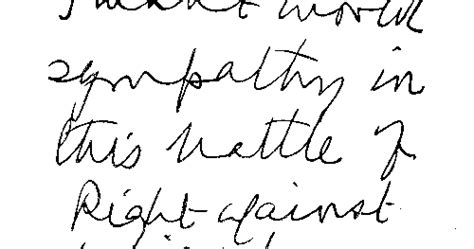 I want world
sympathy in
this battle of
Right against